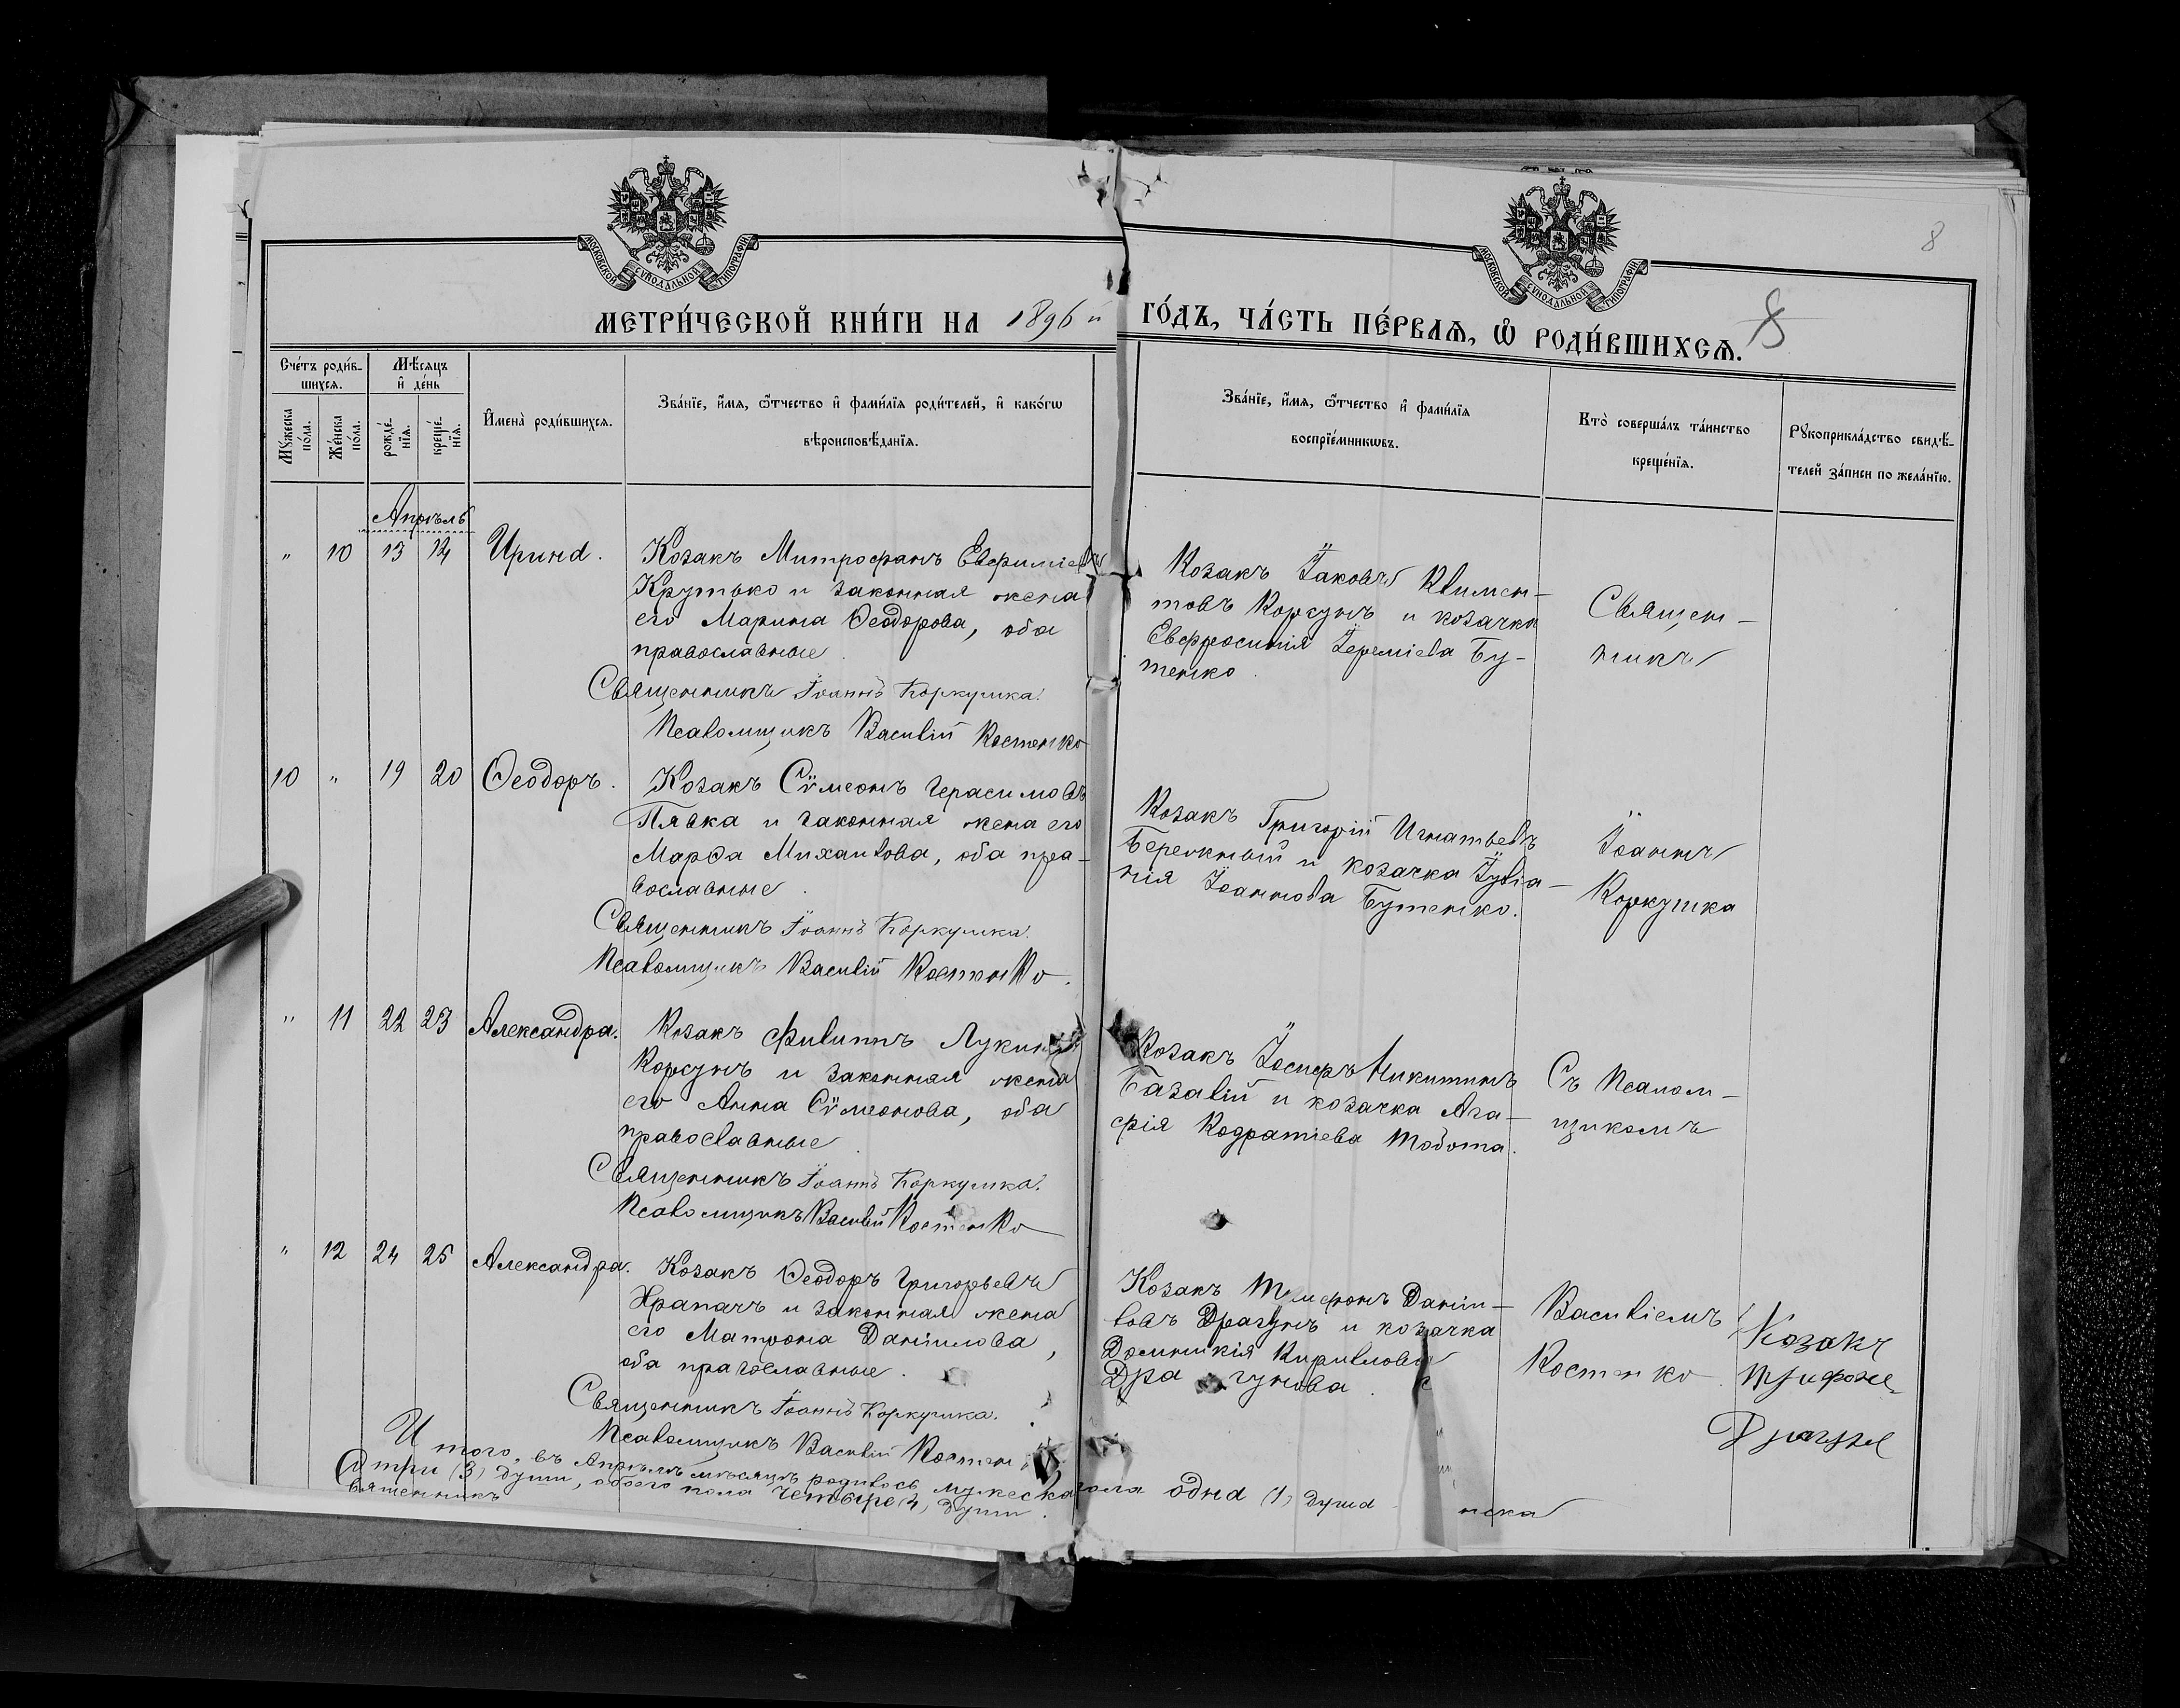 МОСКОВСКОЙ СѴНОДАЛЬНОЙ ТИПОГРАФІИ
МОСКОВСКОЙ СѴНОДАЛЬНОЙ ТИПОГРАФІИ
8
МЕТРИ́ЧЕСКОЙ КНИ́ГИ НА 1896 й ГО́ДЪ, ЧА́СТЬ ПЕ́РВАѦ, Ѡ҆ РОДИ́ВШИХСѦ.
8
Сче́тъ роди́в-
шихсѧ.
Мѣ́сѧцъ
и҆ де́нь
Мꙋ́жеска
по́ла.
Же́нска
по́ла.
рожде́-
нїѧ.
креще́-
нїѧ.
И҆мена̀ роди́вшихсѧ.
Зва́нїе, и҆́мѧ, ѻ҆́тчество и҆ фами́лїѧ роди́телей, и҆ како́гѡ
вѣроисповѣ́данїѧ.
Зва́нїе, и҆́мѧ, ѻ҆́тчество и҆ фами́лїѧ
воспрїе́мникѡвъ.
Кто̀ соверша́лъ та́инство
креще́нїѧ.
Рꙋкоприкла́дство свидѣ́-
телей за́писи по жела́нїю.
Апрѣль
" 10 13 14 Ирина.
Козакъ Митрофанъ Евфиміевъ
Крутько и законная жена
его Марина Ѳеодорова, оба
православные.
Священникъ Іоаннъ Коркушка.
Псаломщикъ Василій Костенко
Козакъ Іаковъ Климен-
товъ Корсунъ и козачка
Евфросинія Іереміева Бу-
тенко.
Священ-
никъ
10 " 19 20 Ѳеодоръ.
Козакъ Сѵмеонъ Герасимовъ
Пявка и законная жена его
Марѳа Михаилова, оба пра-
вославные.
Священникъ Іоаннъ Коркушка.
Псаломщикъ Василій Костенко.
Козакъ Григорій Игнатьевъ
Бережный и козачка Іулiа-
нія Іоаннова Бутенко.
Іоаннъ
Коркушка
" 11 22 23 Александра.
Козакъ Филиппъ Лукинъ
Корсунъ и законная жена
его Анна Сѵмеонова, оба
православные.
Священникъ Іоаннъ Коркушка.
Псаломщикъ Василій Костенко
Козакъ Іосифъ Никитинъ
Базалій и козачка Ага-
фія Кодратіева
Съ Псалом-
щикомъ
" 12 24 25 Александра.
Козакъ Ѳеодоръ Григорьевъ
Храпачъ и законная жена
его Матрона Даніилова,
оба православные.
Священникъ Іоаннъ Коркушка.
Псаломщикъ Василій Костен
Козакъ Даніи-
ловъ Драгунъ и козачка
Домникія Кирилова
Драгунова.
Василіемъ
Костенко.
Козакъ
Драгун
Итого, въ Апрѣлѣ мѣсяцѣ родилось мужеска пола одна (1) душа нска
три (3) души, обоего пола четыре (4) души.
Священникъ